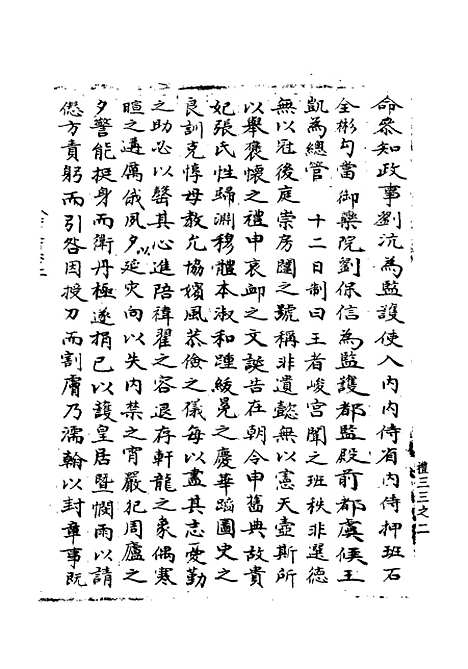 命叅知政事劉沆為監護使入內內侍省內侍押班石
全彬勾當御藥院劉保信為監護都監殿前都虞候王
凱為總管　十二日制曰王者峻宮闈之班秩非選德
無以冠後庭崇房闥之號稱非遺懿無以憲天壼斯所
以舉褒懷之禮申哀卹之文誕告在朝今申舊典故貴
妃張氏性歸淵穆體本淑和踵綏冕之慶華蹈圖史之
良訓克惇母教允協嬪風恭儉之儀每以盡其志憂勤
之助必以罄其心進陪褘翟之容退存軒龍之象偶寒
暄之遘厲俄夙夕以延灾向以失內禁之宵嚴犯周廬之
夕警能挺身而衛丹極遂捐已以護皇居暨憫雨以請
愆方責躬而引咎因授刀而割膚乃濡翰以封章事既
禮三三之二